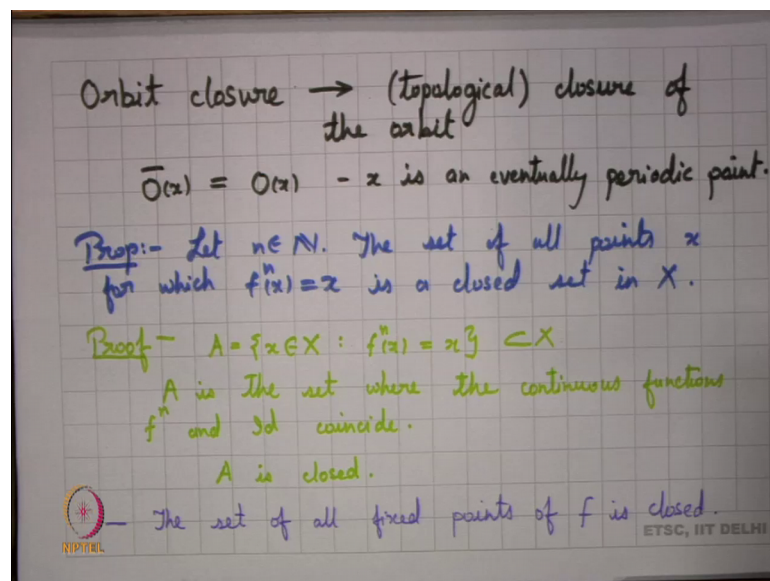 Orbit closure → (topological) closure of
the orbit
Ō(x) = O(x) - x is an eventually periodic point.
Prop:- Let n∈ℕ. The set of all points x
for which fⁿ(x) = x is a closed set in X.
Proof - A = {x∈X : fⁿ(x) = x} ⊂X
A is the set where the continuous functions
fⁿ and Id coincide.
A is closed.
— The set of all fixed points of f is closed.
NPTEL
ETSC, IIT DELHI